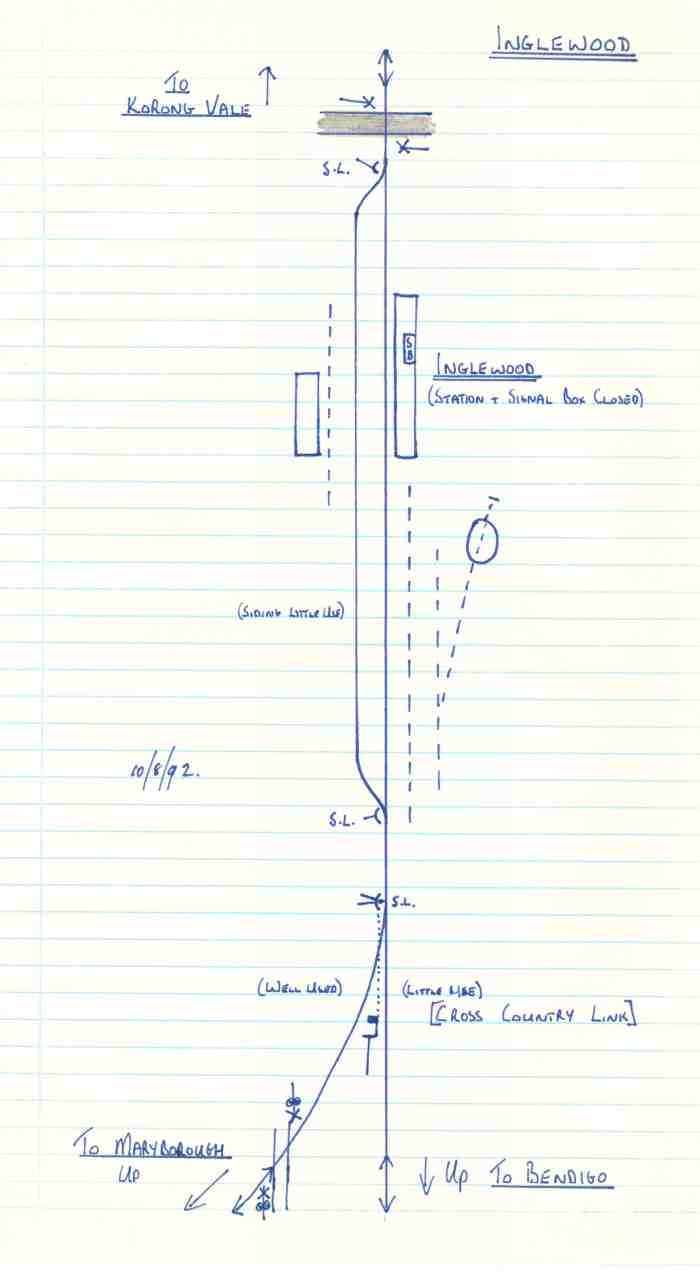 INGLEWOOD
TO
KORONG VALE
S.L.
SB
INGLEWOOD
(STATION + SIGNAL BOX CLOSED)
(SIDING LITTLE USE)
10/8/92.
S.L.
S.L.
(WELL USED)
(LITTLE USE)
[CROSS COUNTRY LINK]
TO MARYBOROUGH
UP
UP TO BENDIGO